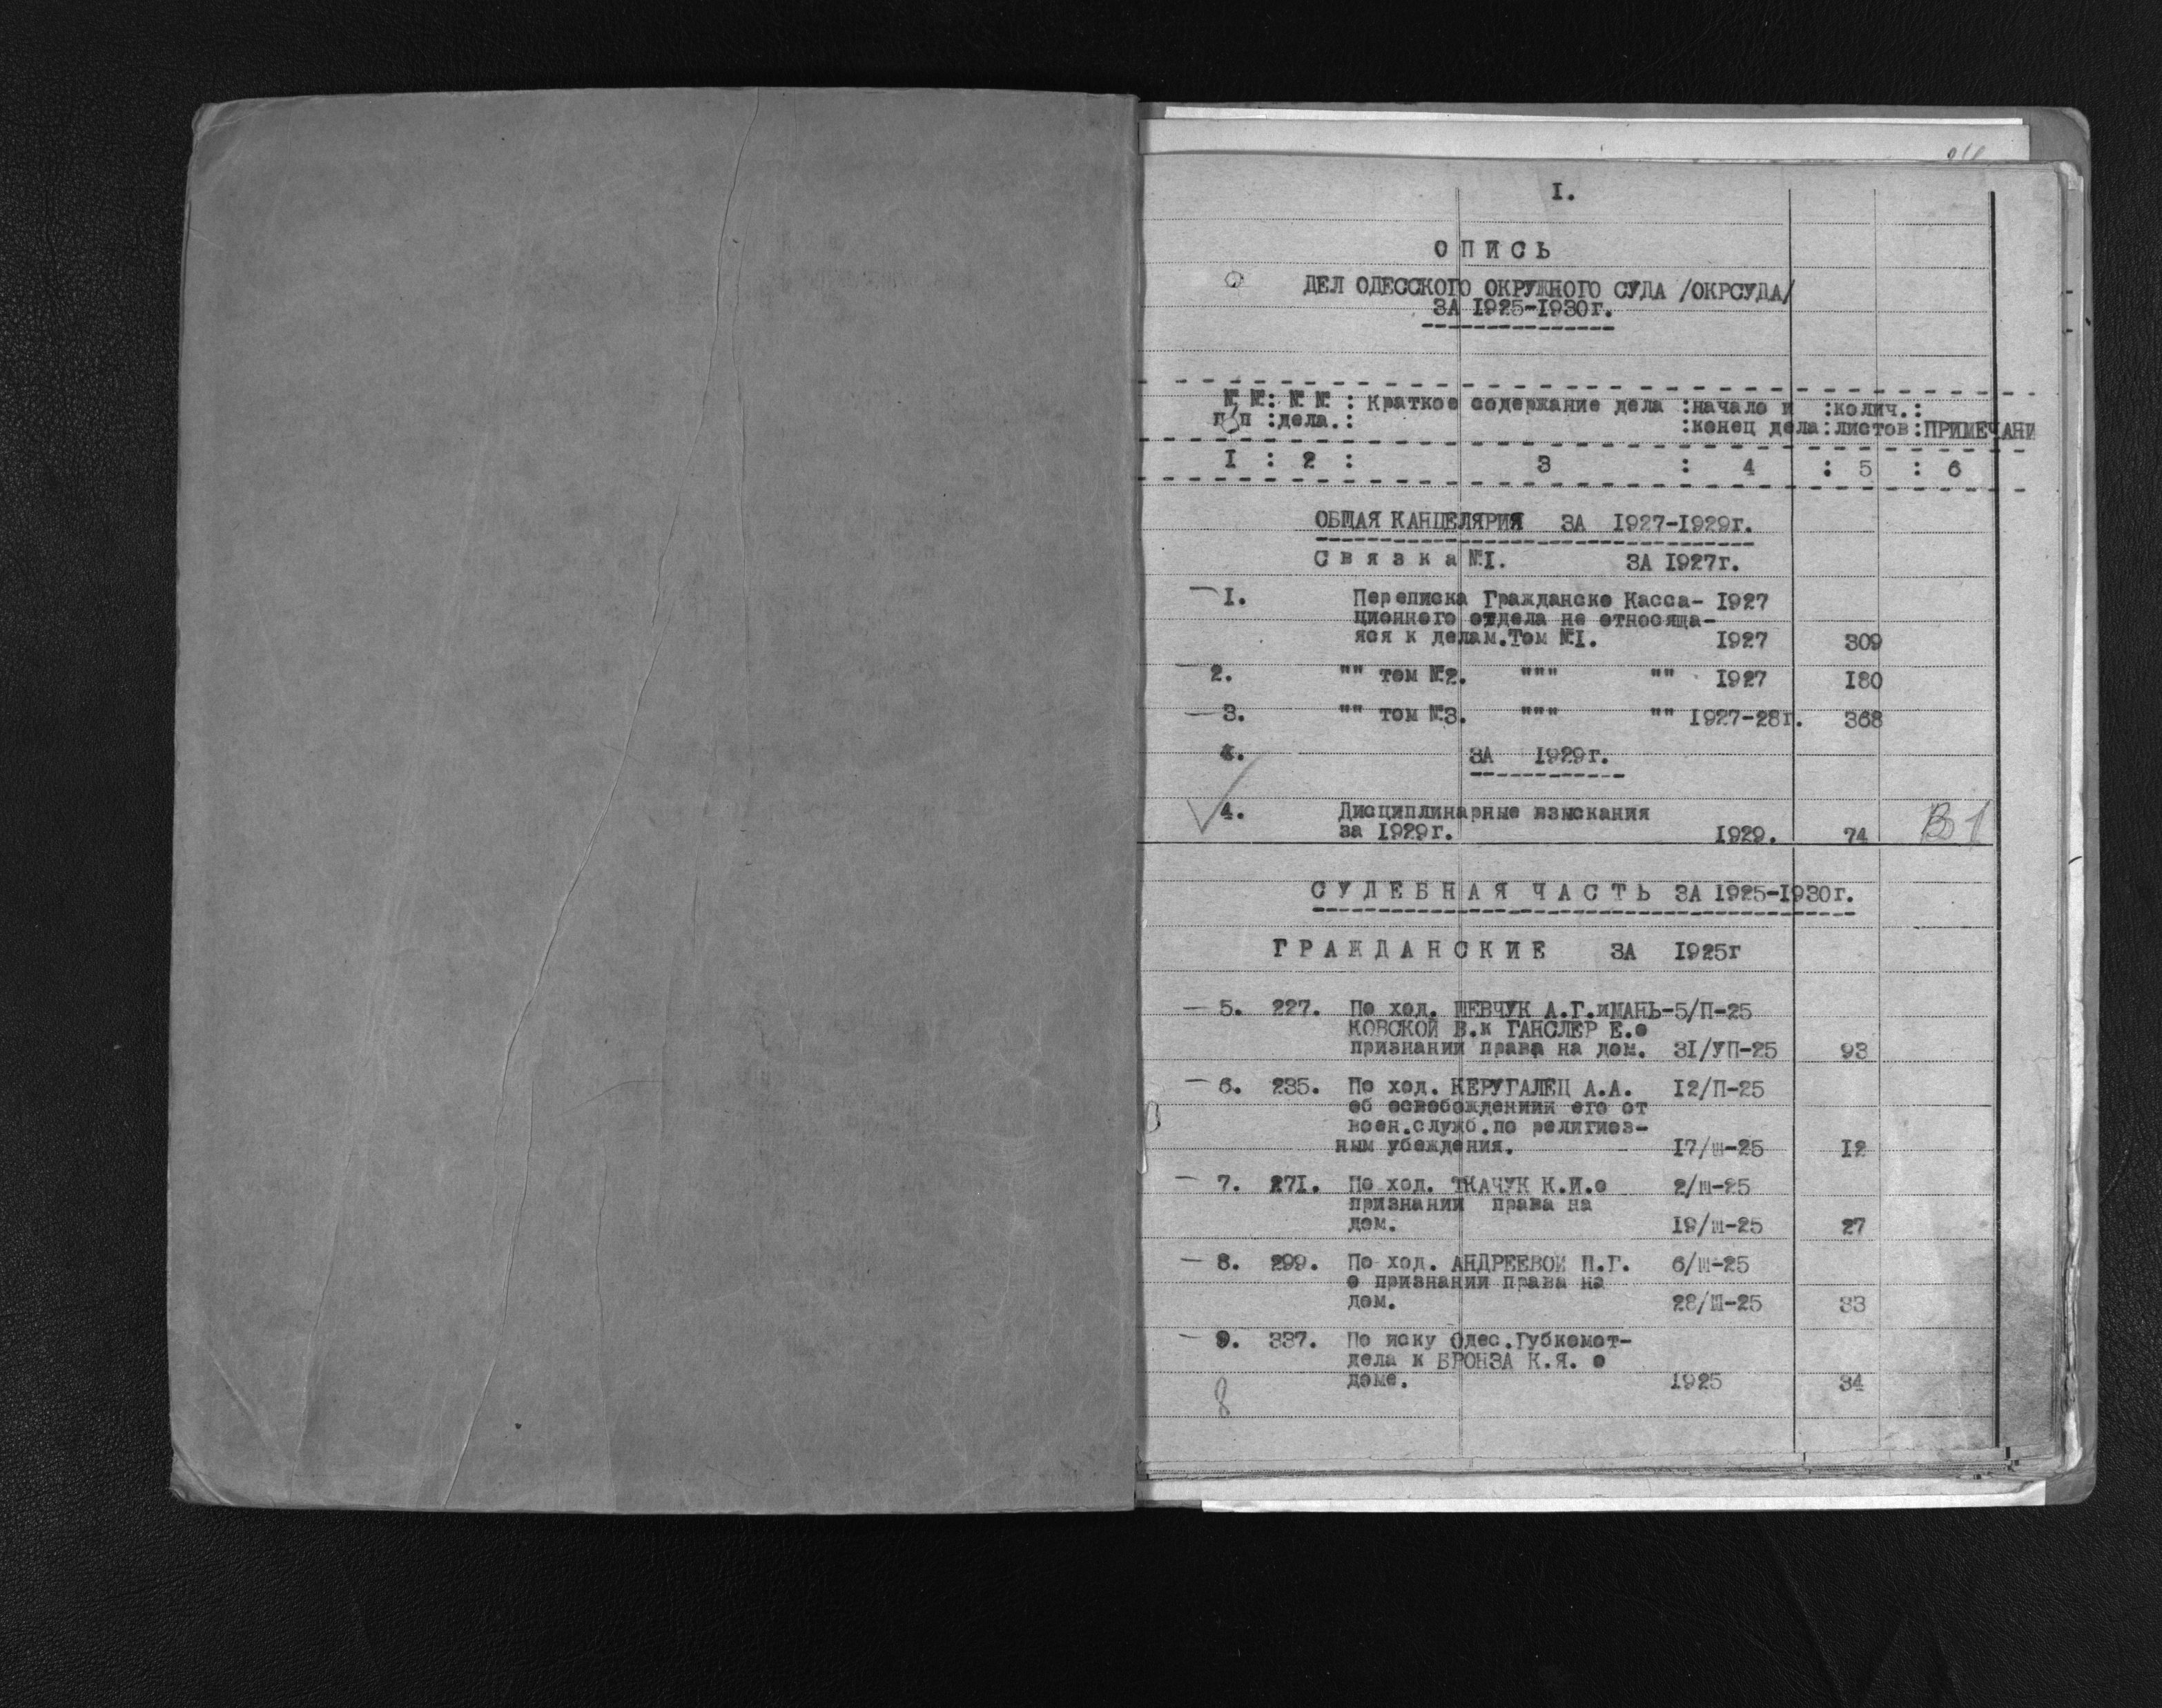 I.
ОПИСЬ
ДЕЛ ОДЕССКОГО ОКРУЖНОГО СУДА /ОКРСУДА/
ЗА 1925-1930г.
№ №: № № : Краткое содержание дела :начало и :колич.:
п/п :дела.: :конец дела:листов:ПРИМЕЧАНИ
I : 2 : 3 : 4 : 5 : 6
ОБЩАЯ КАНЦЕЛЯРИЯ ЗА 1927-1929г.
Связка №I. ЗА 1927г.
1. Переписка Гражданско Касса- 1927
ционного отдела не относяща-
яся к делам.Том №I. 1927 309
2. "" том №2. """ "" 1927 180
3. "" том №3. """ "" 1927-28г. 368
4. ЗА 1929г.
4. Дисциплинарные взыскания
за 1929г. 1929. 74
СУДЕБНАЯ ЧАСТЬ ЗА 1925-1930г.
ГРАЖДАНСКИЕ ЗА 1925г
5. 227. По ход. ШЕВЧУК А.Г.иМАНЬ-5/П-25
КОВСКОЙ В.к ГАНСЛЕР Е.о
признании права на дом. 31/УП-25 93
6. 235. По ход. КЕРУГАЛЕЦ А.А. 12/П-25
об освобождениии его от
воен.служб.по религиоз-
ным убеждения. 17/Ш-25 12
7. 271. По ход. ТКАЧУК К.И.о 2/Ш-25
признании права на
дом. 19/Ш-25 27
8. 299. По ход. АНДРЕЕВОЙ П.Г. 6/Ш-25
о признании права на
дом. 28/Ш-25 33
9. 337. По иску Одес.Губкомот-
дела к БРОНЗА К.Я. о
доме. 1925 34
8